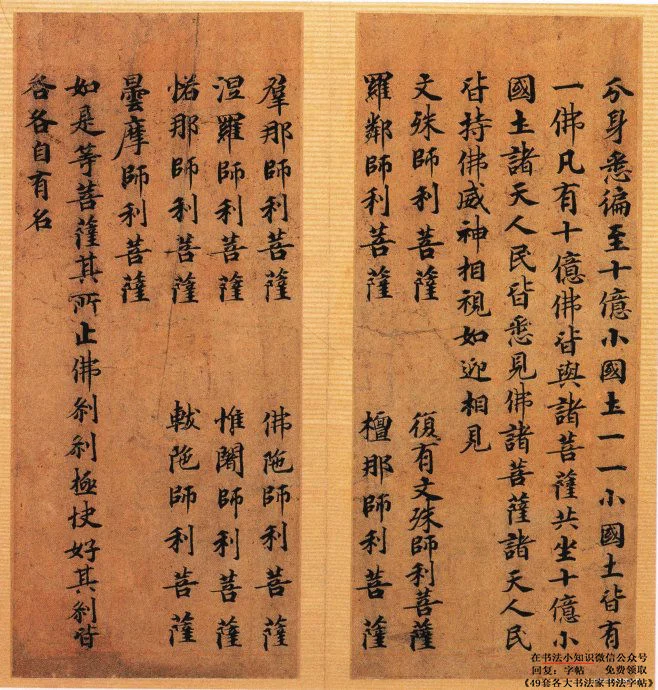 分身悉徧至十億小國土一一小國土皆有
一佛凡有十億佛皆與諸菩薩共坐十億小
國土諸天人民皆悉見佛諸菩薩諸天人民
皆持佛威神相視如迎相見
文殊師利菩薩 復有文殊師利菩薩
羅鄰師利菩薩 檀那師利菩薩
羣那師利菩薩 佛陁師利菩薩
涅羅師利菩薩 惟闍師利菩薩
那師利菩薩 陁師利菩薩
曇摩師利菩薩
如是等菩薩其所止佛剎剎極快好其剎皆
各各自有名
在书法小知识微信公众号
回复：字帖 免费领取
《49套各大书法家书法字帖》